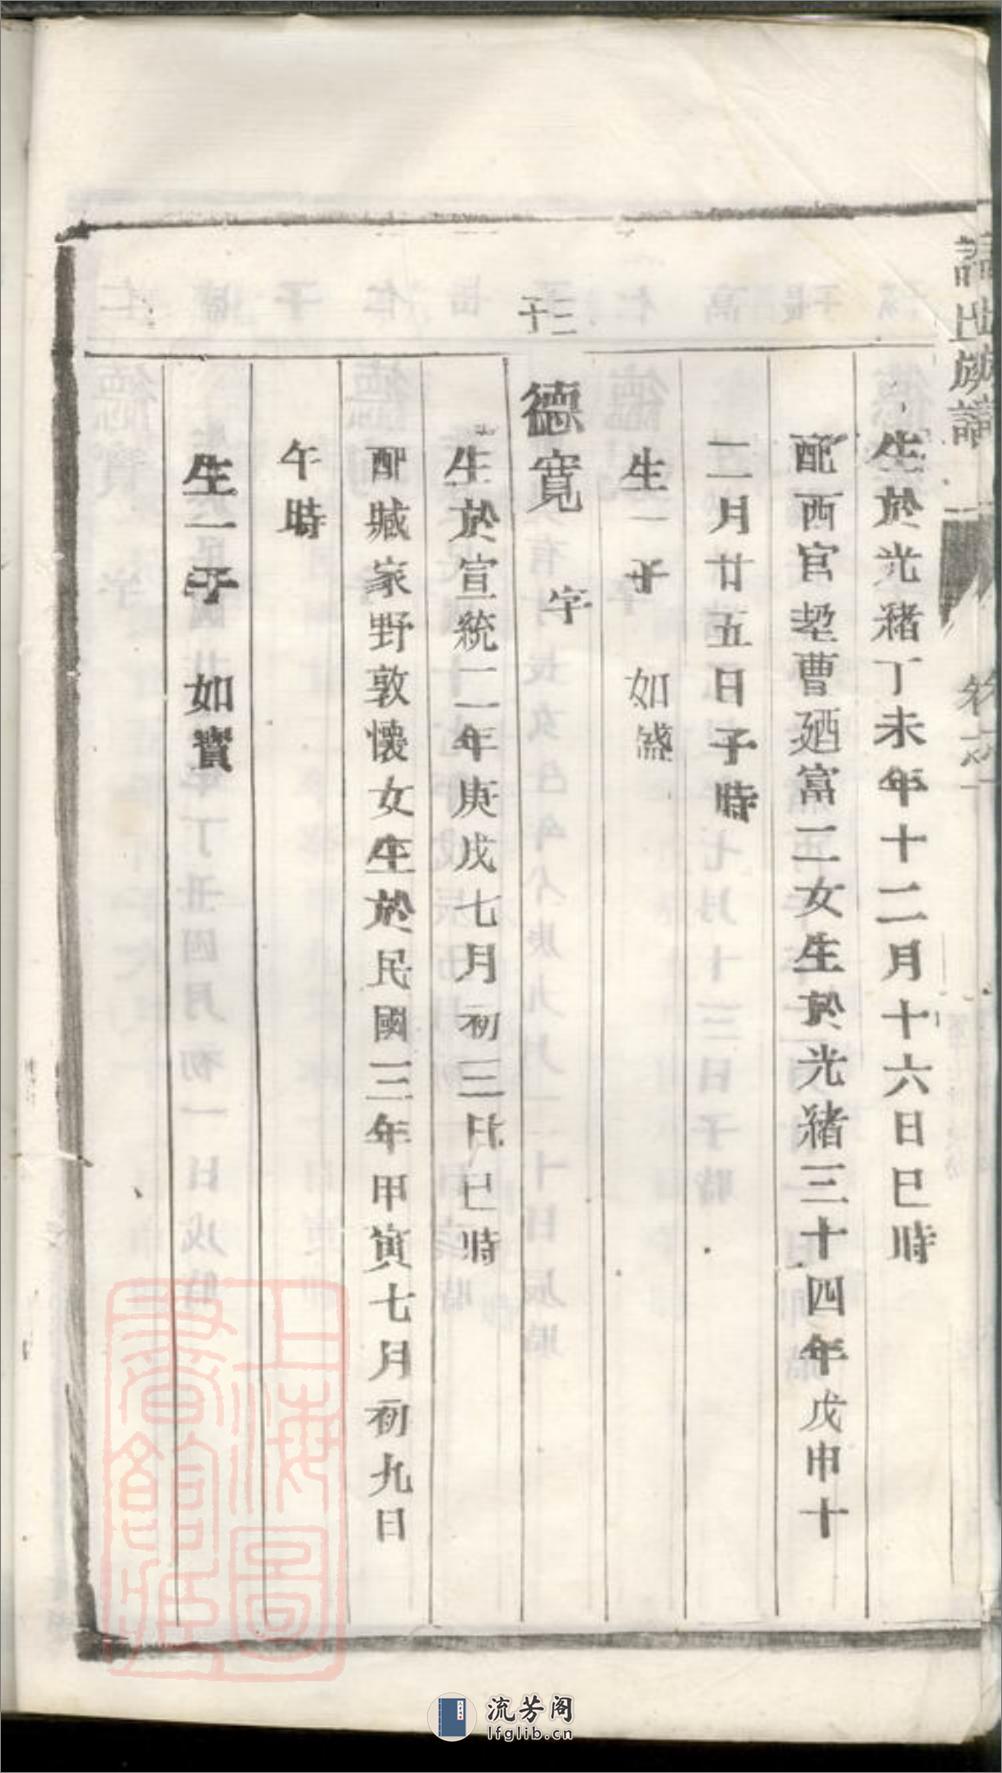 氏族譜
生於光緒丁未年十二月十六日巳時
配西官莊曹廼富二女生於光緒三十四年戊申十
二月廿五日子時
生一子 如盛
三子
德寬 字
生於宣統二年庚戌七月初三日巳時
配臧家野敦懷女生於民國三年甲寅七月初九日
午時
生一子 如寶
上海圖書館藏
流芳阁
lfglib.cn